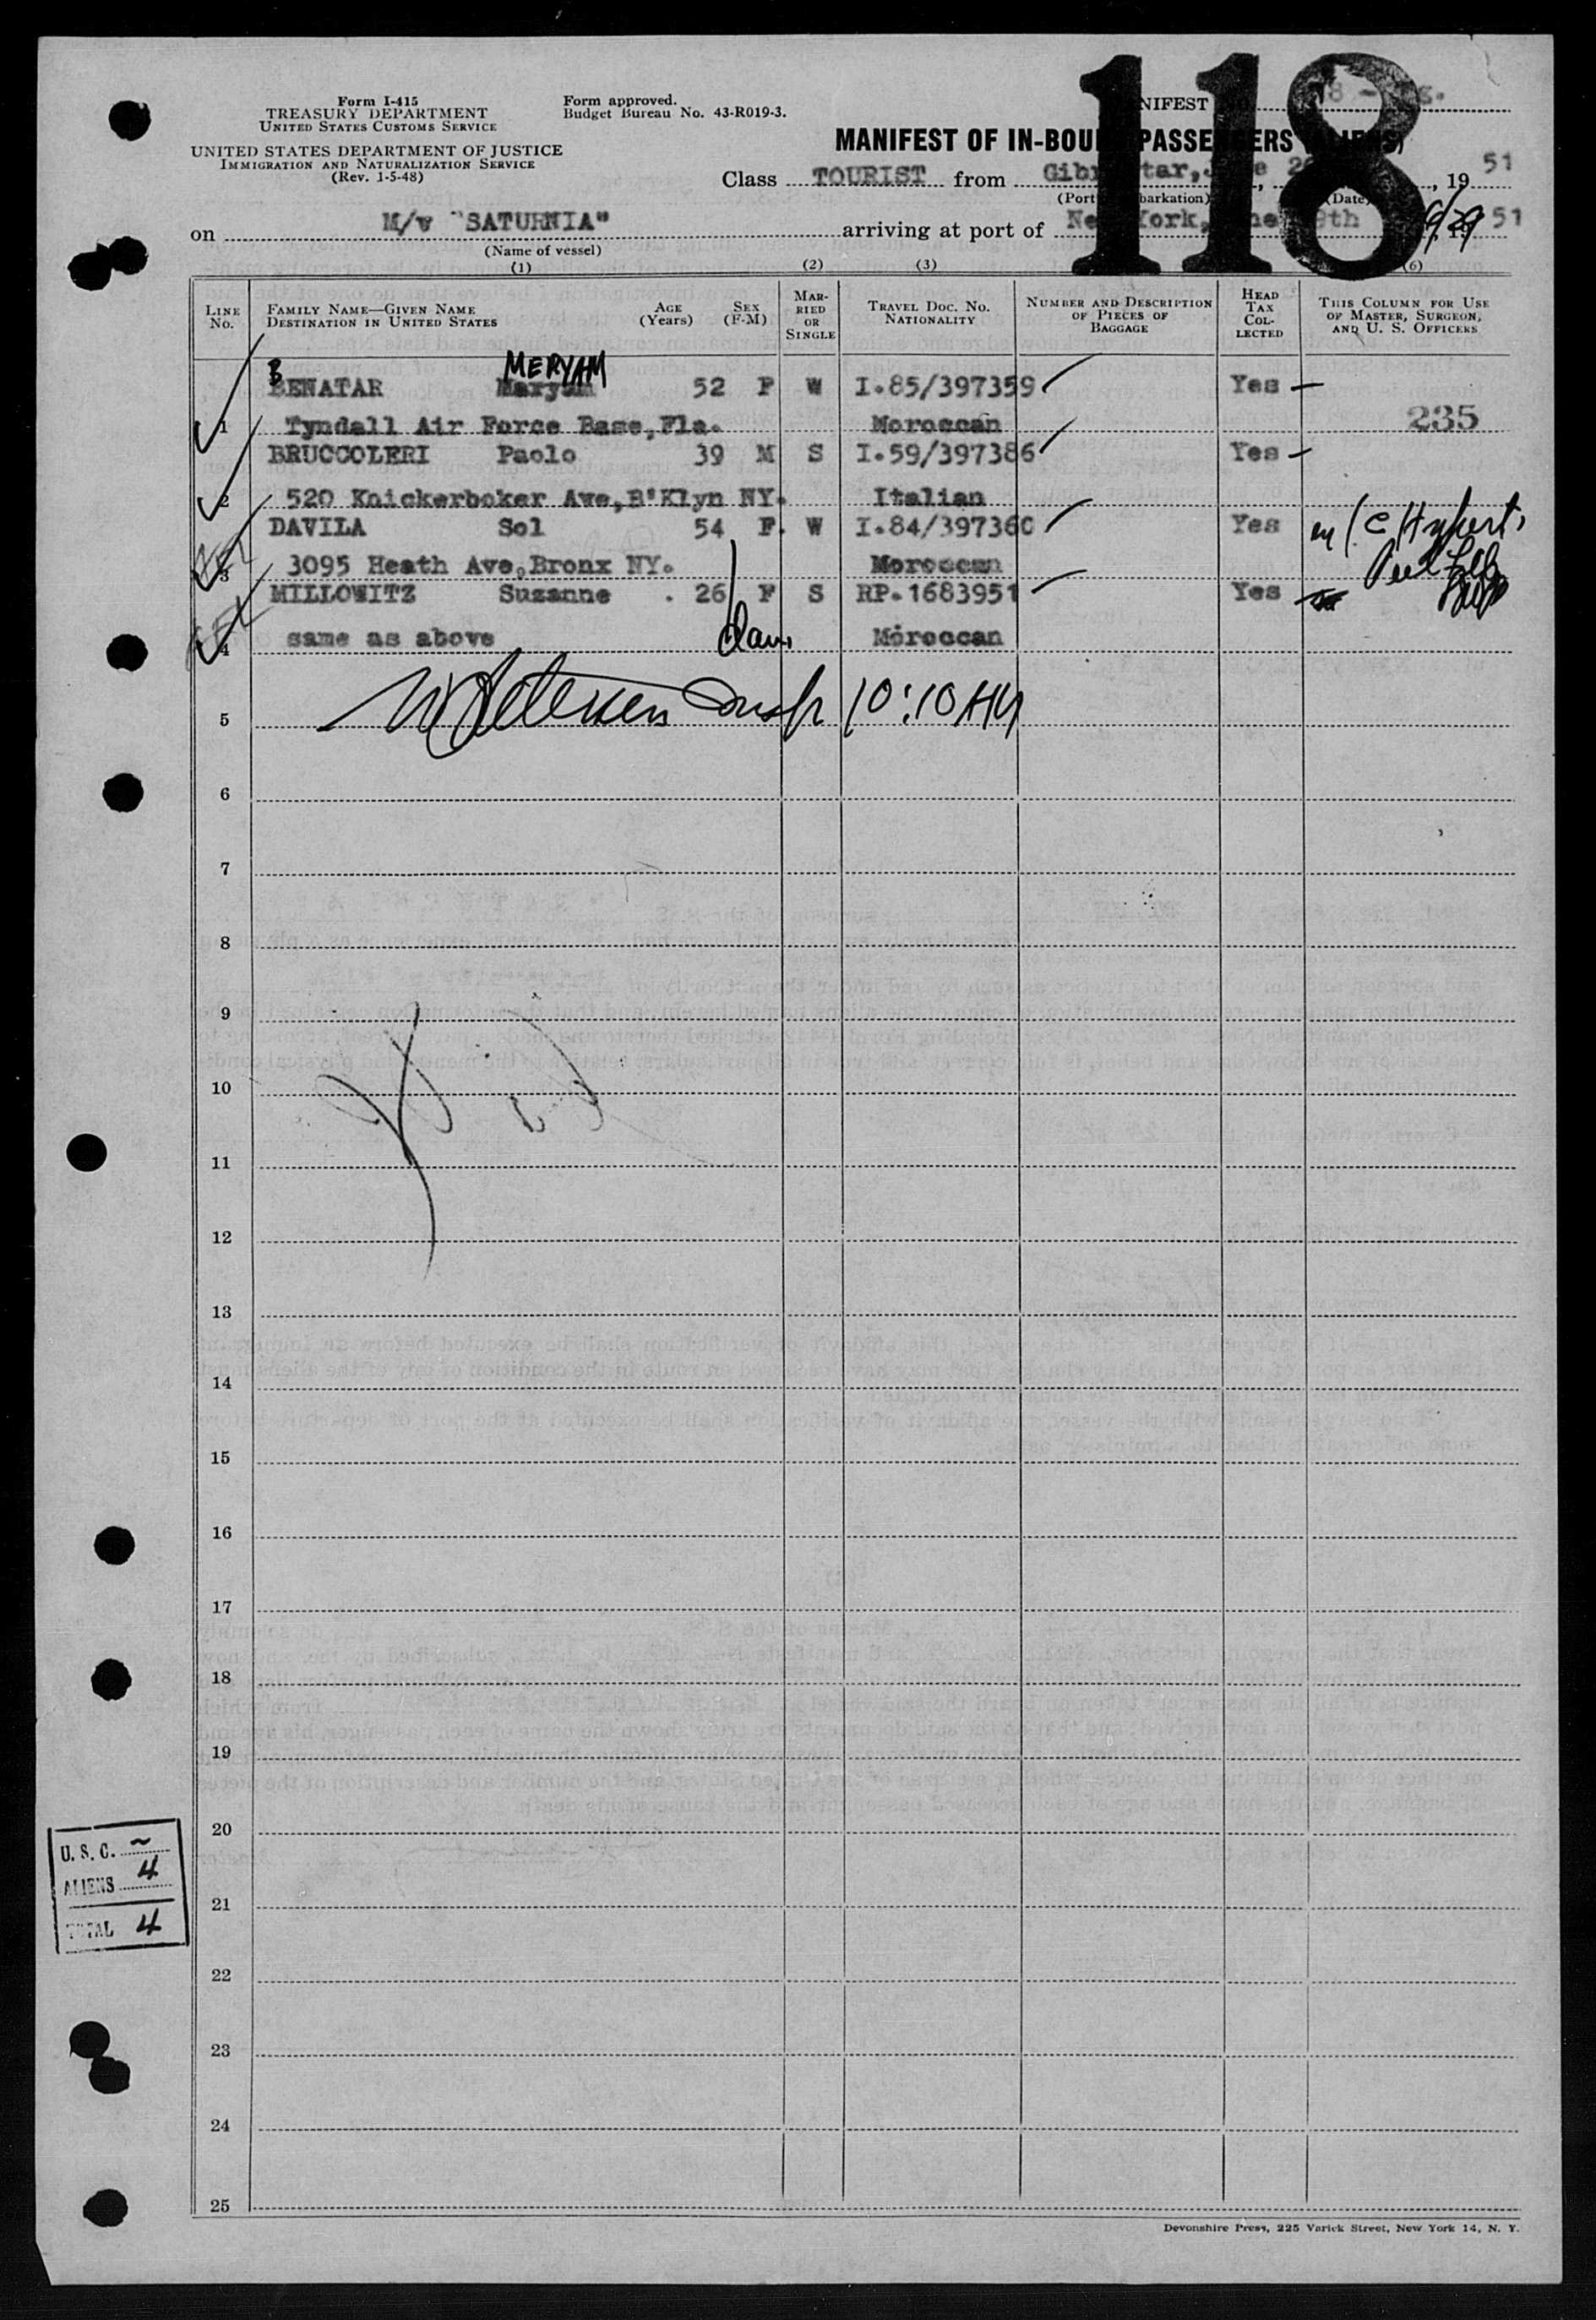 118
Form I-415
TREASURY DEPARTMENT
UNITED STATES CUSTOMS SERVICE
UNITED STATES DEPARTMENT OF JUSTICE
IMMIGRATION AND NATURALIZATION SERVICE
(Rev. 1-5-48)
Form approved.
Budget Bureau No. 43-R019-3.
MANIFEST OF IN-BOUND PASSENGERS (ALIENS)
Class TOURIST from Gibraltar, June , 19 51
(Port of embarkation) (Date)
on M/v "SATURNIA" arriving at port of New York, June 29th 6/29 19 51
(Name of vessel)
(1) (2) (3) (6)
LINE No. FAMILY NAME—GIVEN NAME DESTINATION IN UNITED STATES AGE (Years) SEX (F-M) MARRIED OR SINGLE TRAVEL DOC. NO. NATIONALITY NUMBER AND DESCRIPTION OF PIECES OF BAGGAGE HEAD TAX COLLECTED THIS COLUMN FOR USE OF MASTER, SURGEON, AND U. S. OFFICERS
B MERYAM
BENATAR Maryam 52 F W I.85/397359 Yes —
1 Tyndall Air Force Base,Fla. Moroccan 235
BRUCCOLERI Paolo 39 M S I.59/397386 Yes —
2 520 Knickerboker Ave,B'Klyn NY. Italian
DAVILA Sol 54 F. W I.84/397360 Yes
3 3095 Heath Ave,Bronx NY. Moroccan
MILLOWITZ Suzanne . 26 F S RP.1683951 Yes
4 same as above Moroccan
5 10:10 AM
6
7
8
9
10
11
12
13
14
15
16
17
18
19
20
21
22
23
24
25
U. S. C. ~
ALIENS 4
TOTAL 4
Devonshire Press, 225 Varick Street, New York 14, N. Y.